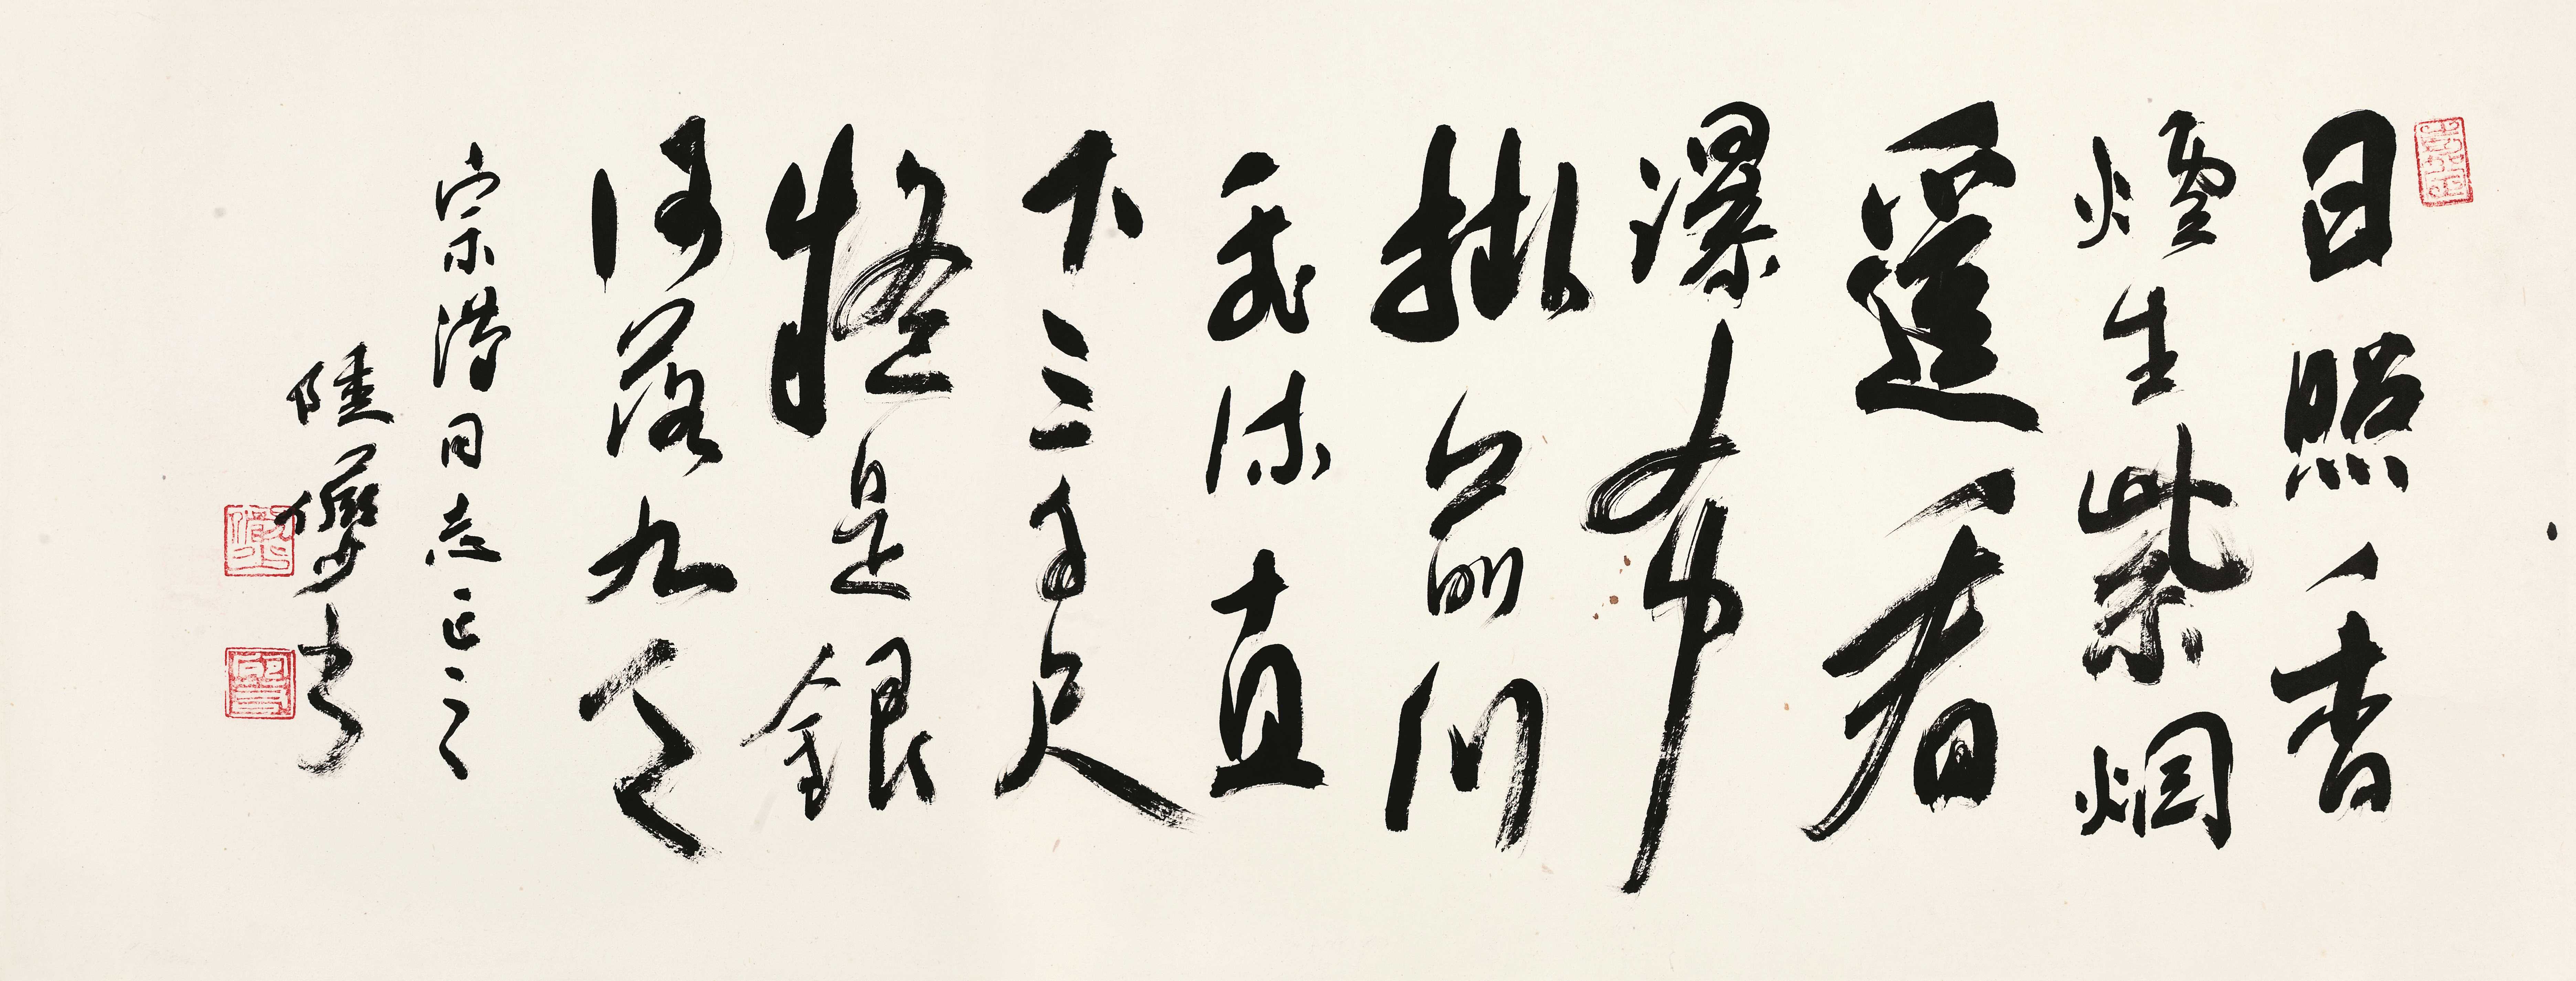 日照香
爐生紫烟
遥看
瀑布
掛前川
飛流直
下三千尺
疑是銀
河落九天
宗濤同志正之
陸儼少書